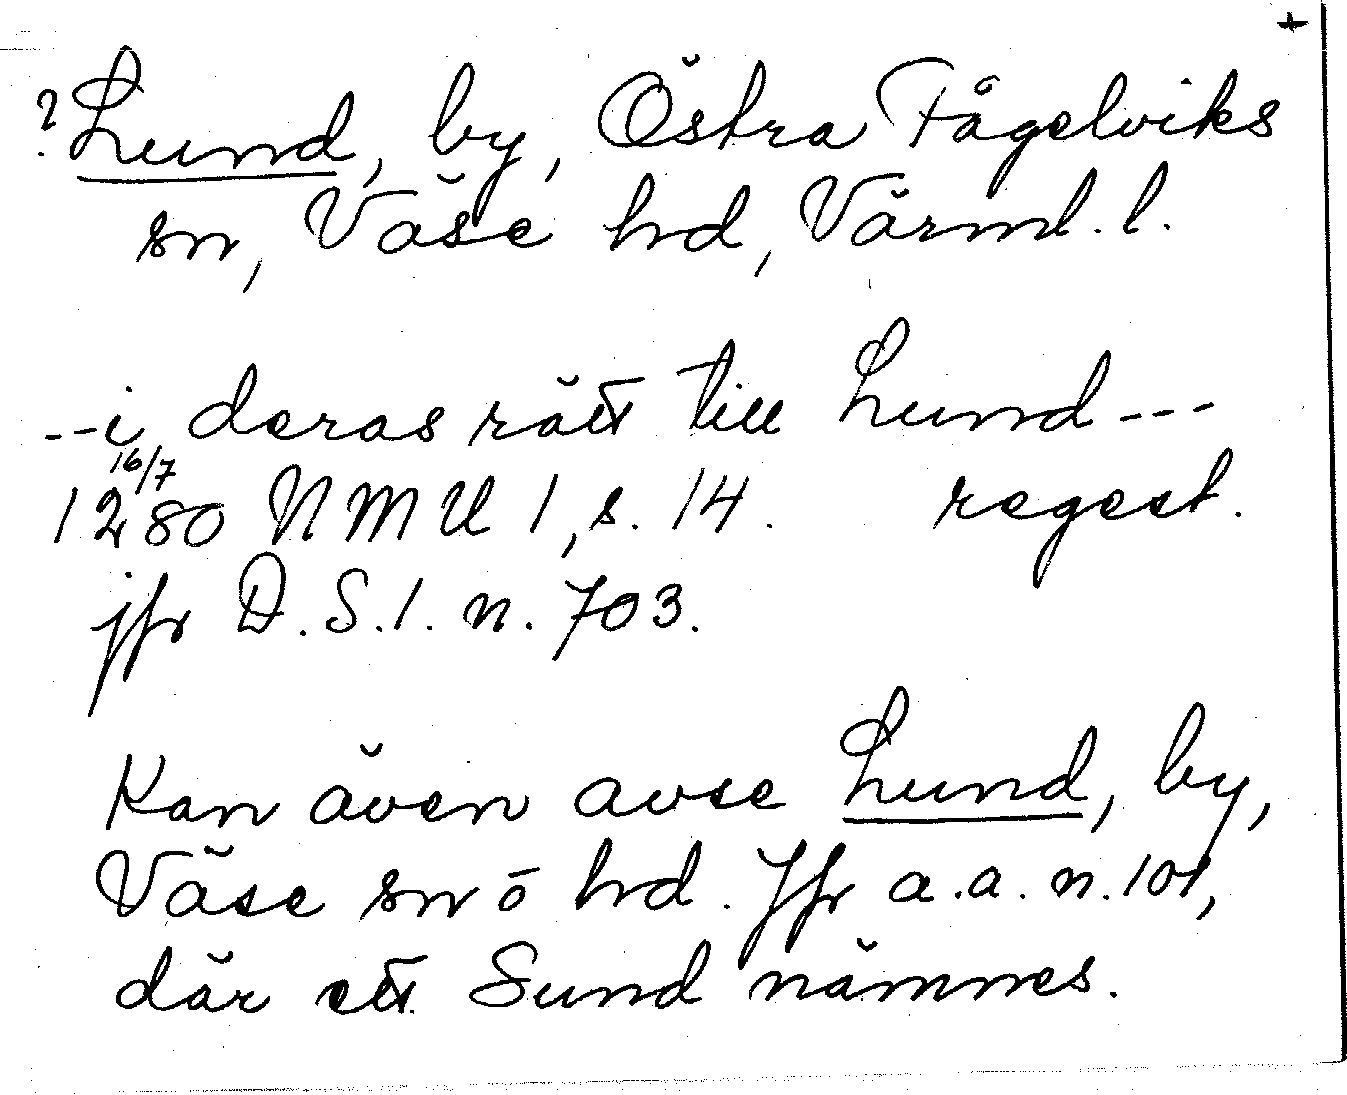 +
? Lund, by, Östra Fågelviks
sn, Väse hd, Värml. l.
--i deras rätt till Lund---
16/7
1280 NMU 1, s. 14. regest.
jfr D.S.1. n. 703.
Kan även avse Lund, by,
Väse sn o hd. Jfr a.a. n. 101,
där ett Sund nämnes.